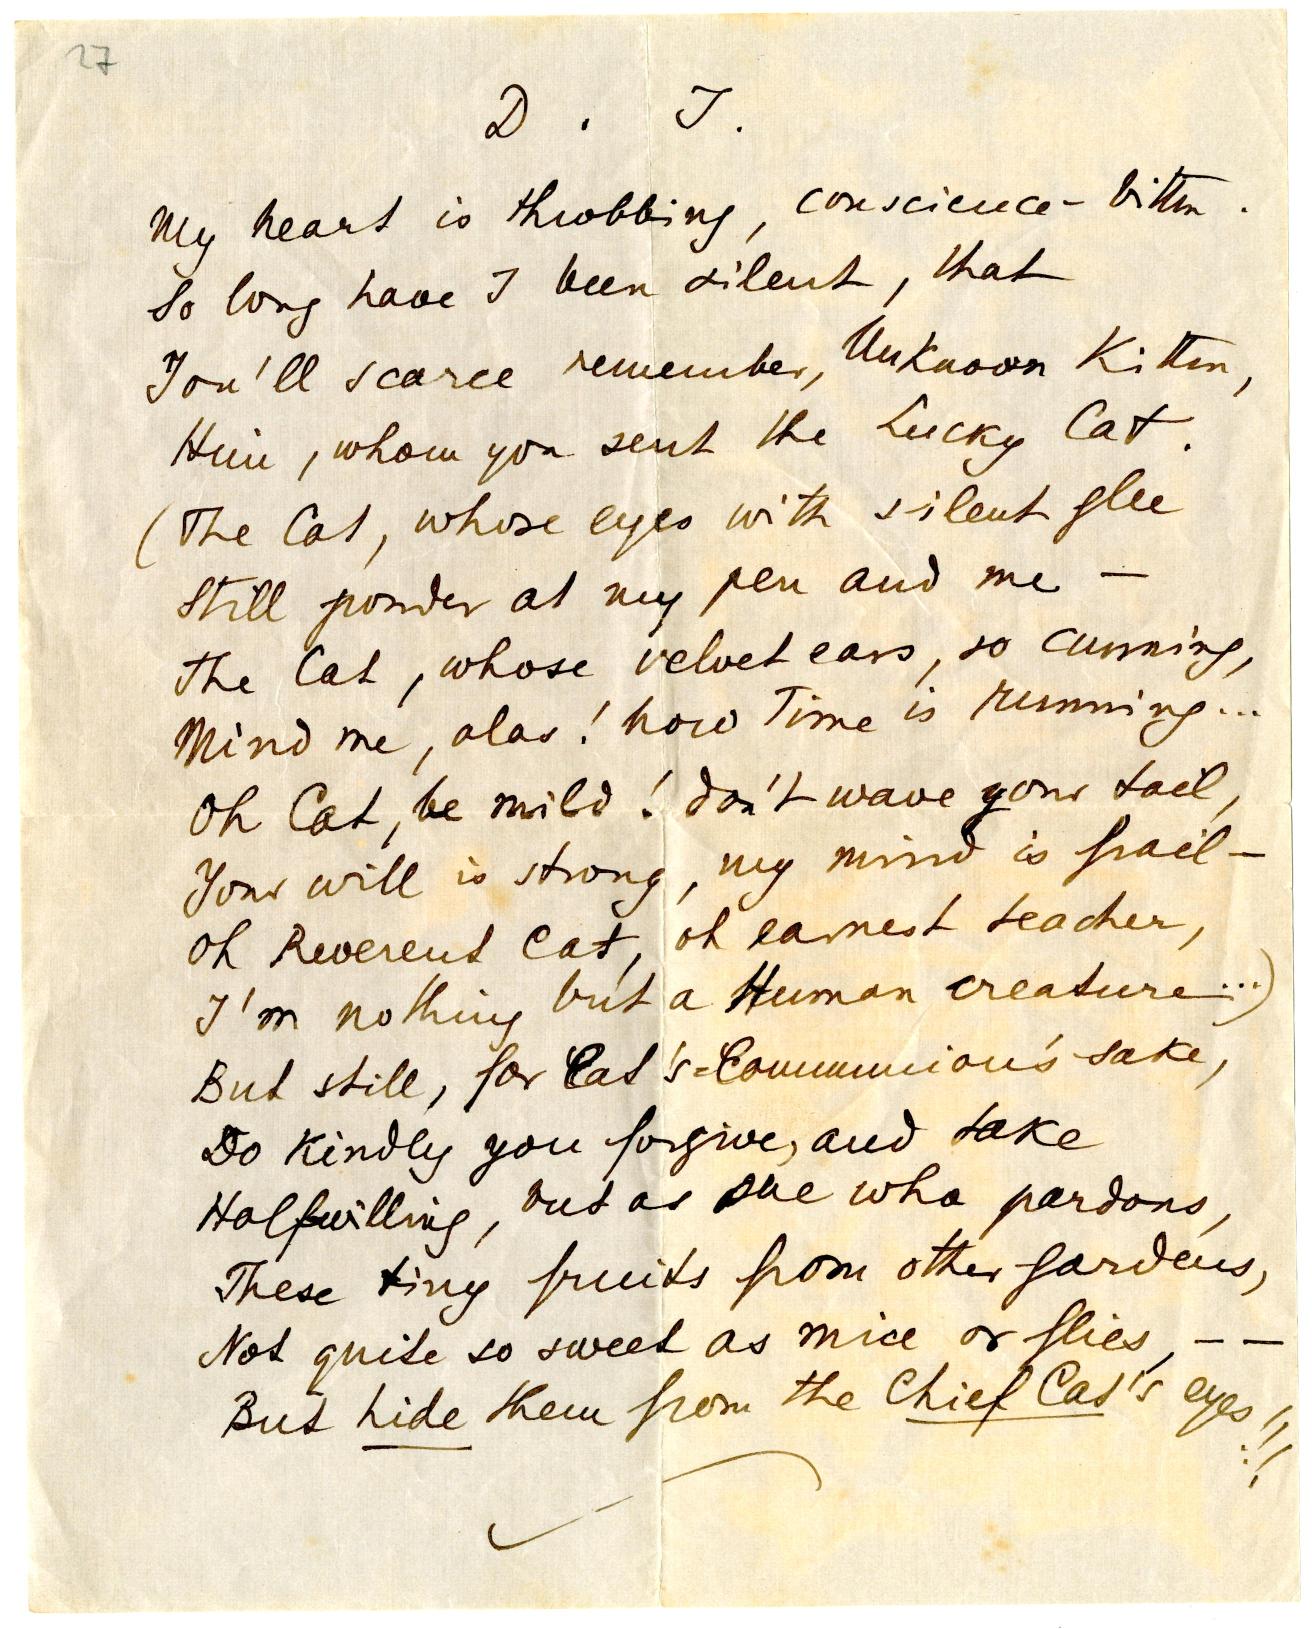 27
D. T.
My heart is throbbing, conscience-bitten.
So long have I been silent, that
You'll scarce remember, Unknown Kitten,
Him, whom you sent the Lucky Cat.
(The Cat, whose eyes with silent glee
Still ponder at my pen and me —
The Cat, whose velvet ears, so cunning,
Mind me, alas! how Time is running...
Oh Cat, be mild! don't wave your tail,
Your will is strong, my mind is frail —
Oh Reverent Cat, oh earnest teacher,
I'm nothing but a Human creature...)
But still, for Cat's=Communion's sake,
Do kindly you forgive, and take
Halfwilling, but as she who pardons,
These tiny fruits from other gardens,
Not quite so sweet as mice or flies, — —
But hide them from the Chief Cat's eyes!!!